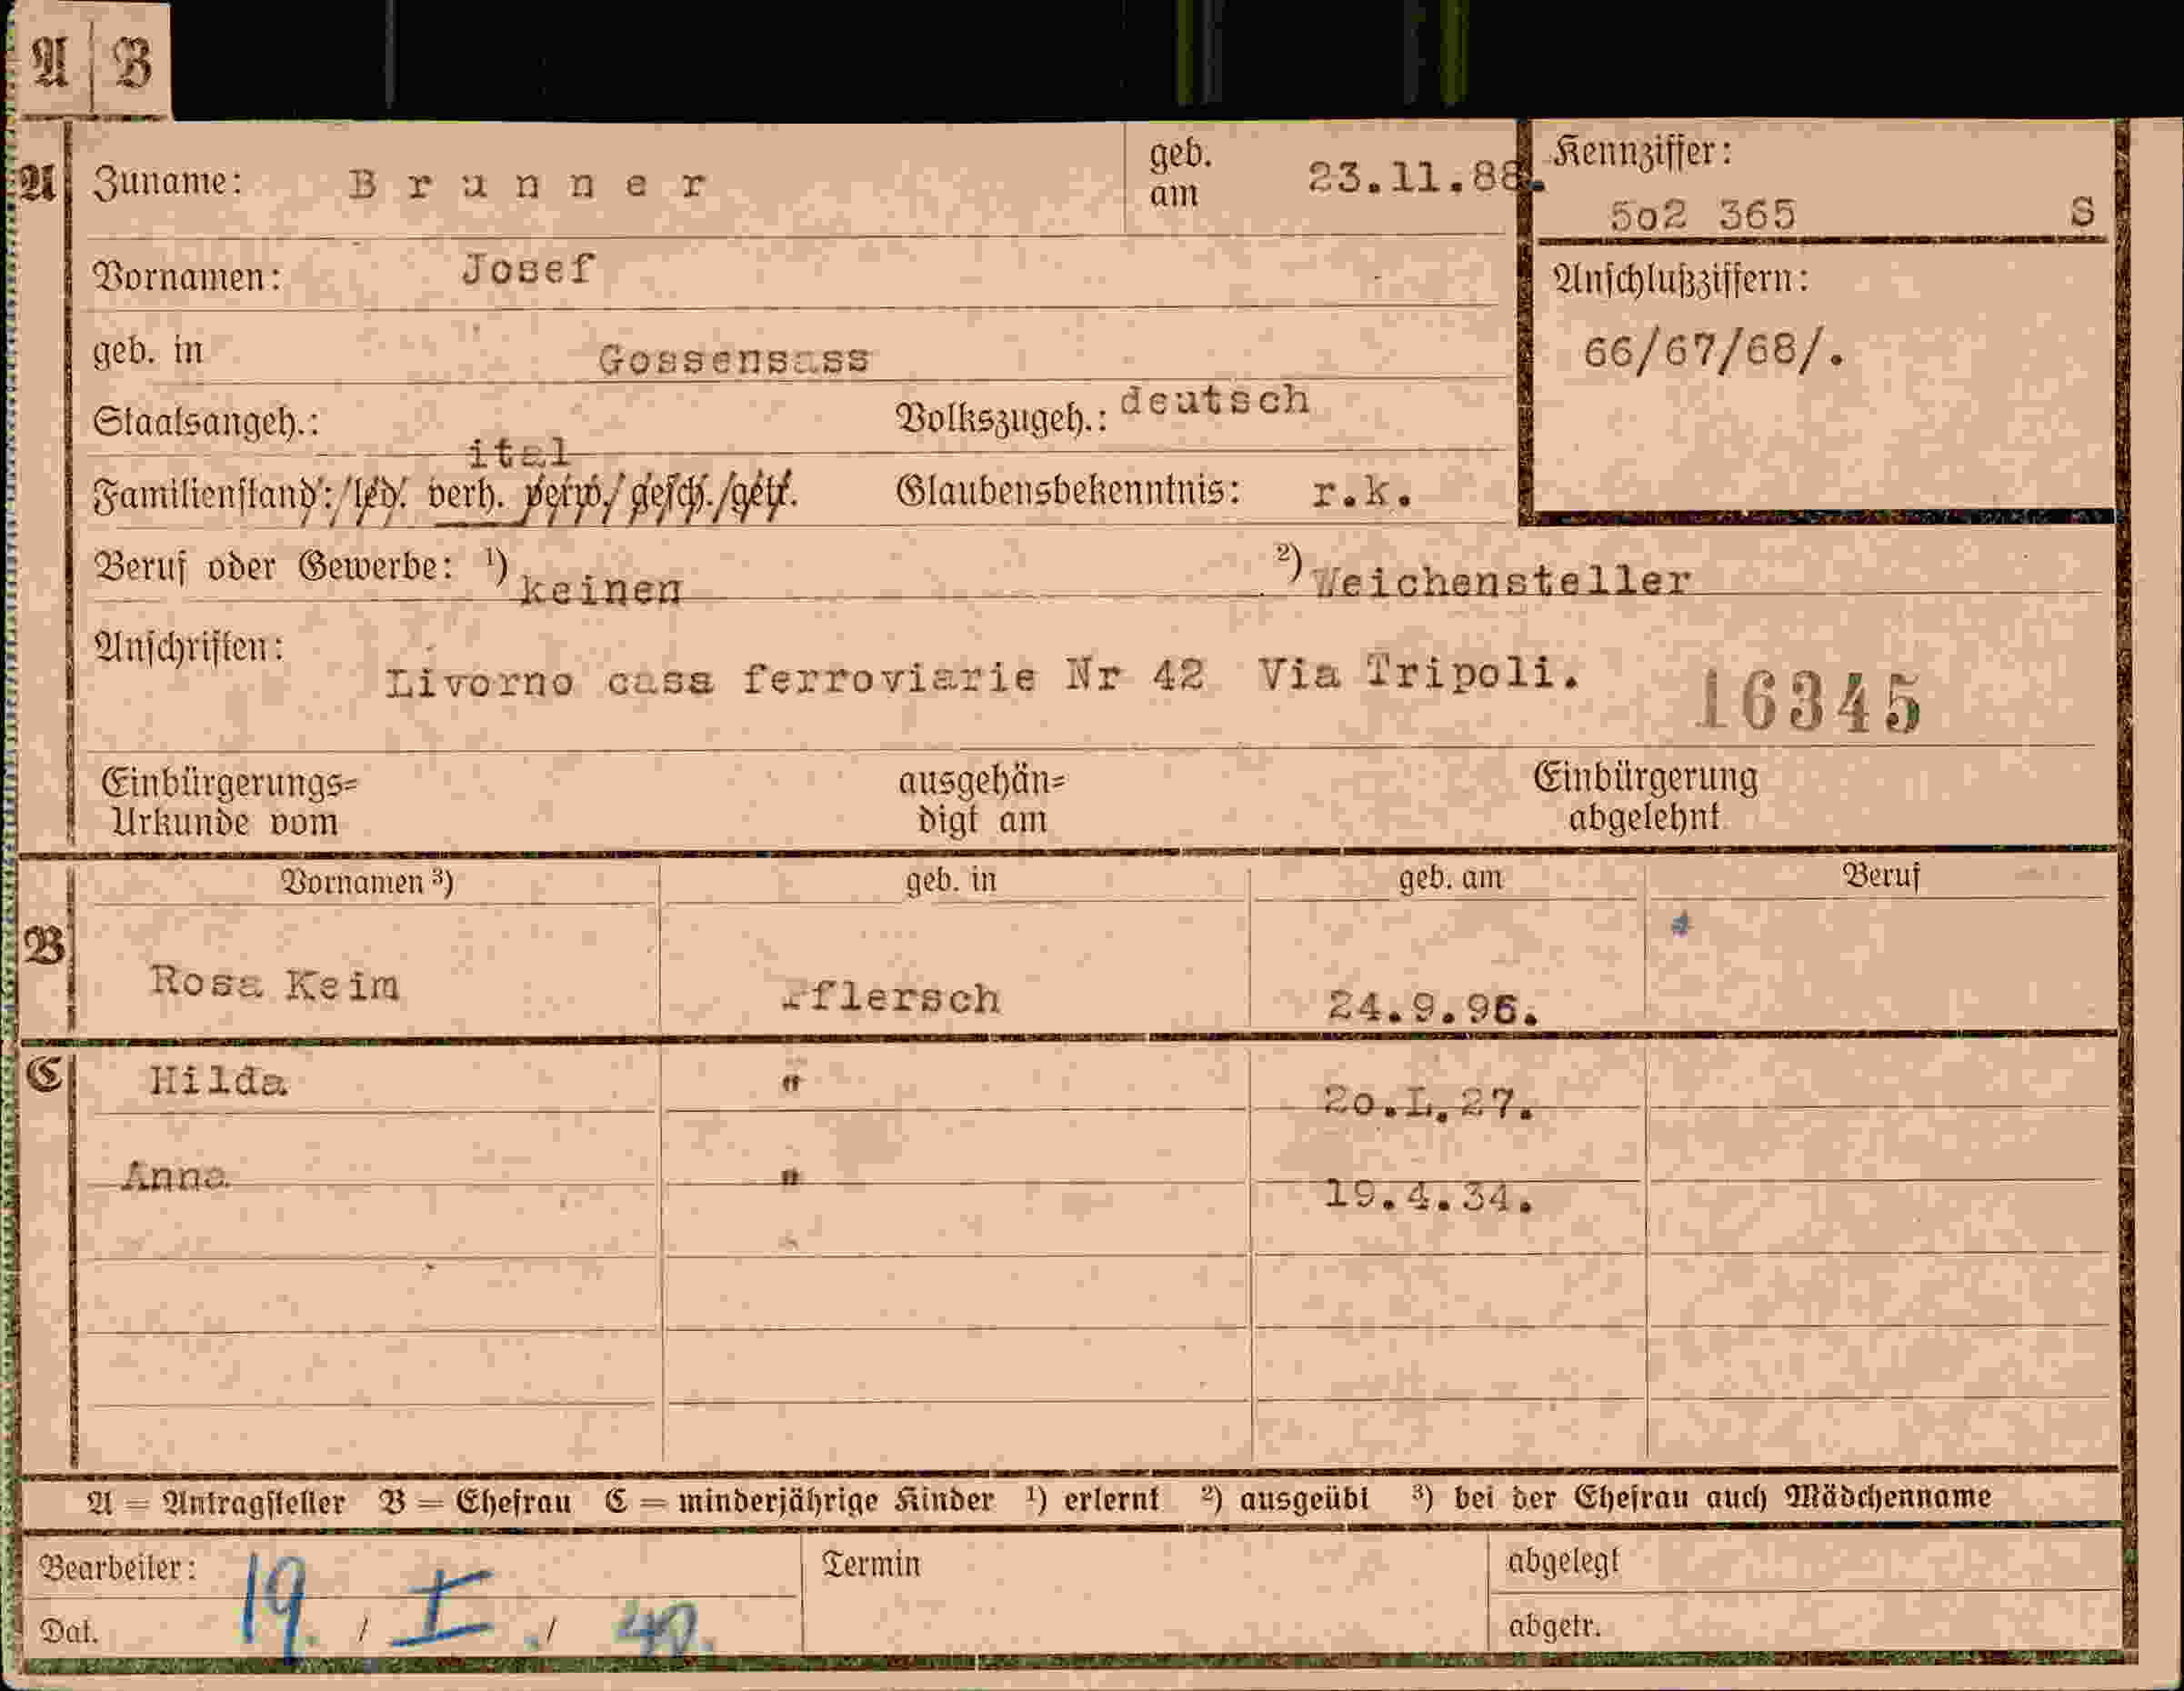 A B
A Zuname: Brunner geb. am 23.11.88. Kennziffer:
5o2 365 S
Vornamen: Josef Anschlußziffern:
geb. in Gossensass 66/67/68/.
Staatsangeh.: ital Volkszugeh.: deutsch
Familienstand: led. verh. verw. gesch. getr. Glaubensbekenntnis: r.k.
Beruf oder Gewerbe: 1) keinen 2) Weichensteller
Anschriften: Livorno casa ferroviarie Nr 42 Via Tripoli. 16345
Einbürgerungs= ausgehän= Einbürgerung
Urkunde vom digt am abgelehnt
Vornamen 3) geb. in geb. am Beruf
B Rosa Keim flersch 24.9.96.
C Hilda " 2o.I.27.
Anna " 19.4.34.
A = Antragsteller B = Ehefrau C = minderjährige Kinder 1) erlernt 2) ausgeübt 3) bei der Ehefrau auch Mädchenname
Bearbeiter: Termin abgelegt
Dat. 19. / I. / 40. abgetr.